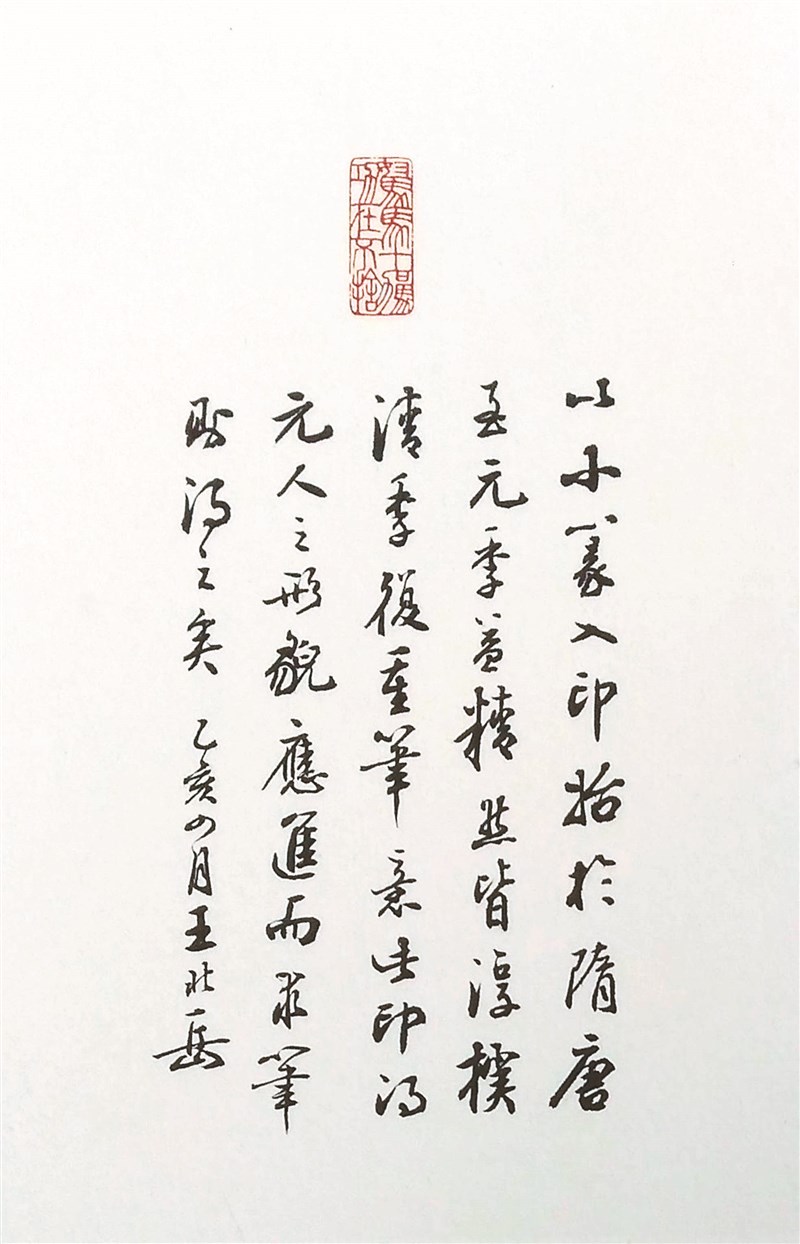 駑馬十駕
功在不捨
以小篆入印始於隋唐
至元季益精然皆淳樸
清季復重筆意此印得
元人之形貌應進而求筆
則得之矣 乙亥四月王北岳